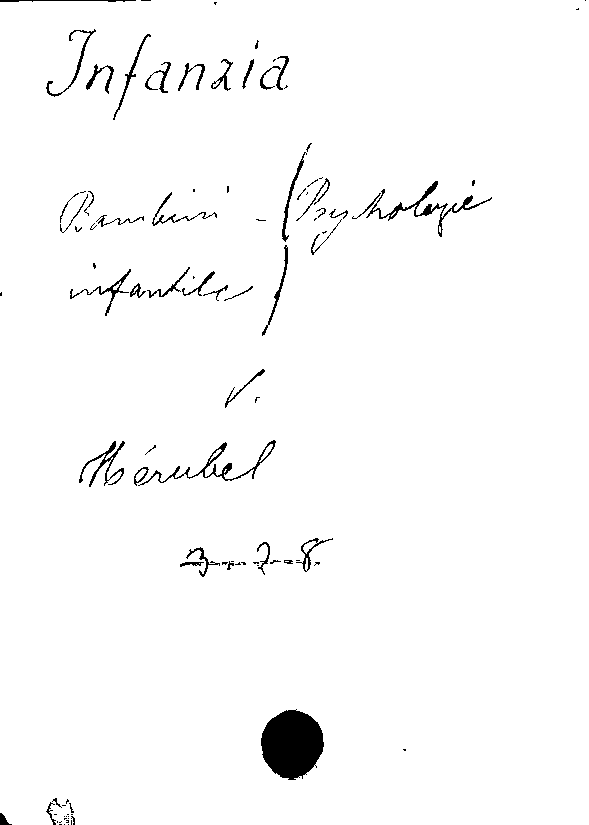 Infanzia
Bambini - (Psychologie
infantile )
V.
Hérubel
3.-7-8.